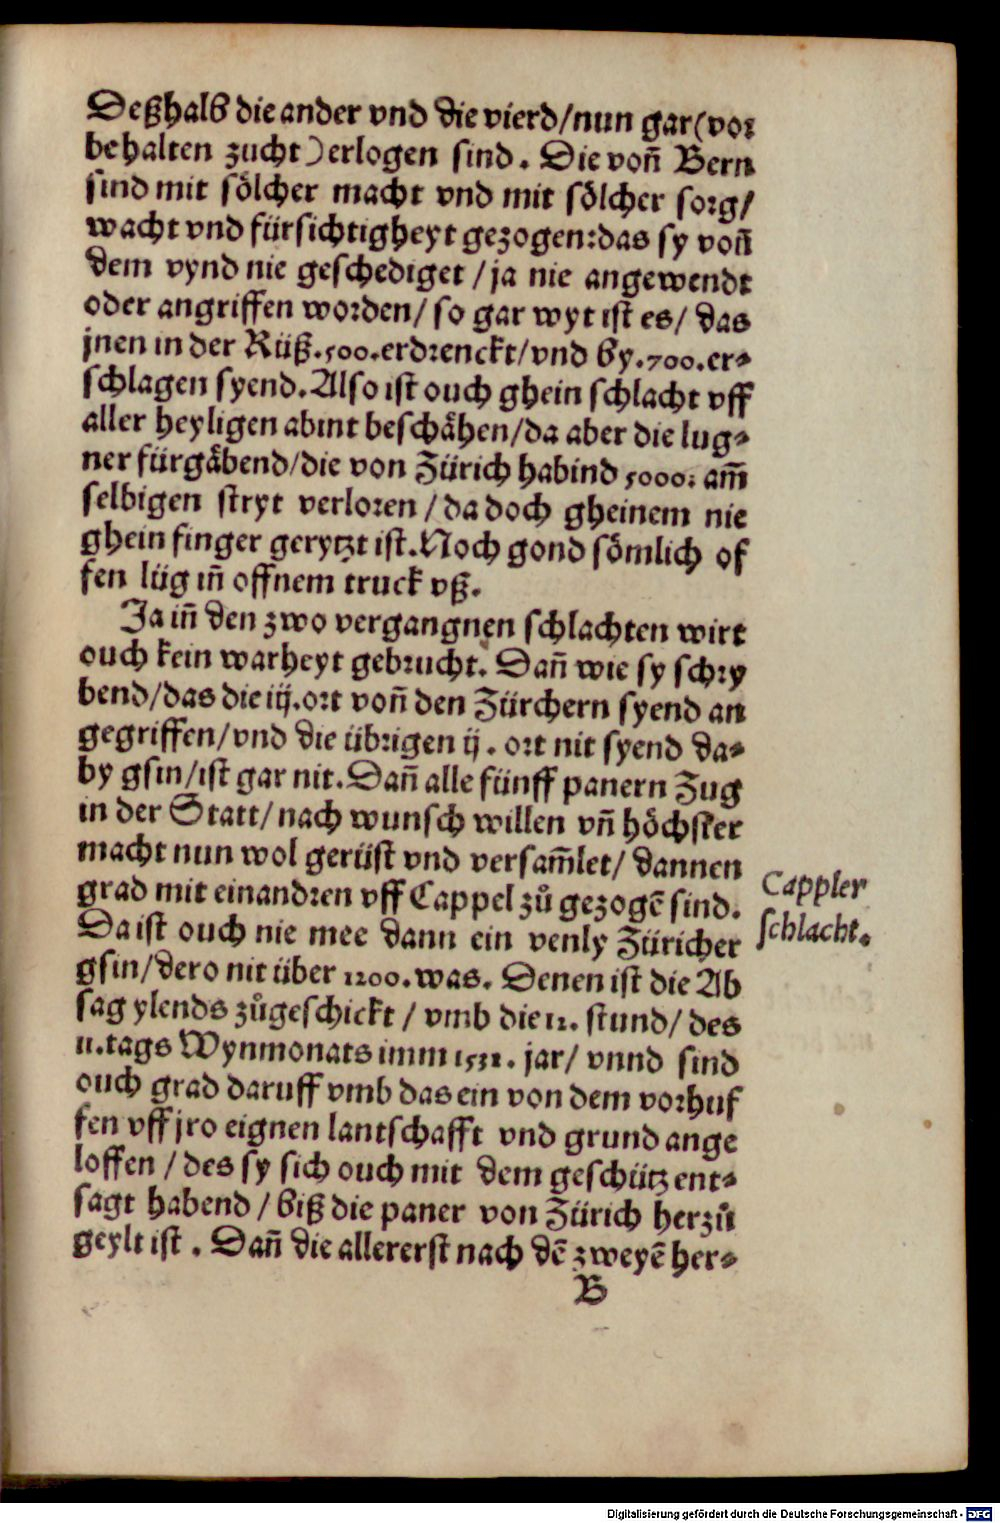 Deßhalb die ander vnd die vierd/nun gar(vor
behalten zucht)erlogen sind. Die voñ Bern
sind mit sölcher macht vnd mit sölcher sorg/
wacht vnd fürsichtigheyt gezogen:das sy voñ
dem vynd nie geschediget /ja nie angewendt
oder angriffen worden/ so gar wyt ist es/ das
jnen in der Rüß.500.erdrenckt/vnd by.700.er⸗
schlagen syend.Also ist ouch ghein schlacht vff
aller heyligen abint beschähen/da aber die lug⸗
ner fürgäbend/die von Zürich habind 5000. am̃
selbigen stryt verloren /da doch gheinem nie
ghein finger gerytzt ist.Noch gond sömlich of
fen lüg iñ offnem truck vß.
Ja iñ den zwo vergangnen schlachten wirt
ouch kein warheyt gebrucht. Dañ wie sy schry
bend/das die iij.ort voñ den Zürchern syend an
gegriffen/vnd die übrigen ij. ort nit syend da⸗
by gsin/ist gar nit.Dañ alle fünff panern Zug
in der Statt/nach wunsch willen vñ höchster
macht nun wol gerüst vnd versam̃let/ dannen
grad mit einandren vff Cappel zů gezogẽ sind.
Da ist ouch nie mee dann ein venly Züricher
gsin/dero nit über 1200.was. Denen ist die Ab
sag ylends zůgeschickt / vmb die 12. stund/ des
11.tags Wynmonats imm 1531. jar/ vnnd sind
ouch grad daruff vmb das ein von dem vorhuf
fen vff jro eignen lantschafft vnd grund ange
loffen /des sy sich ouch mit dem geschütz ent⸗
sagt habend /biß die paner von Zürich herzů
geylt ist . Dañ die allererst nach dẽ zweyẽ her⸗
B
Cappler
schlacht.
Digitalisierung gefördert durch die Deutsche Forschungsgemeinschaft - DFG